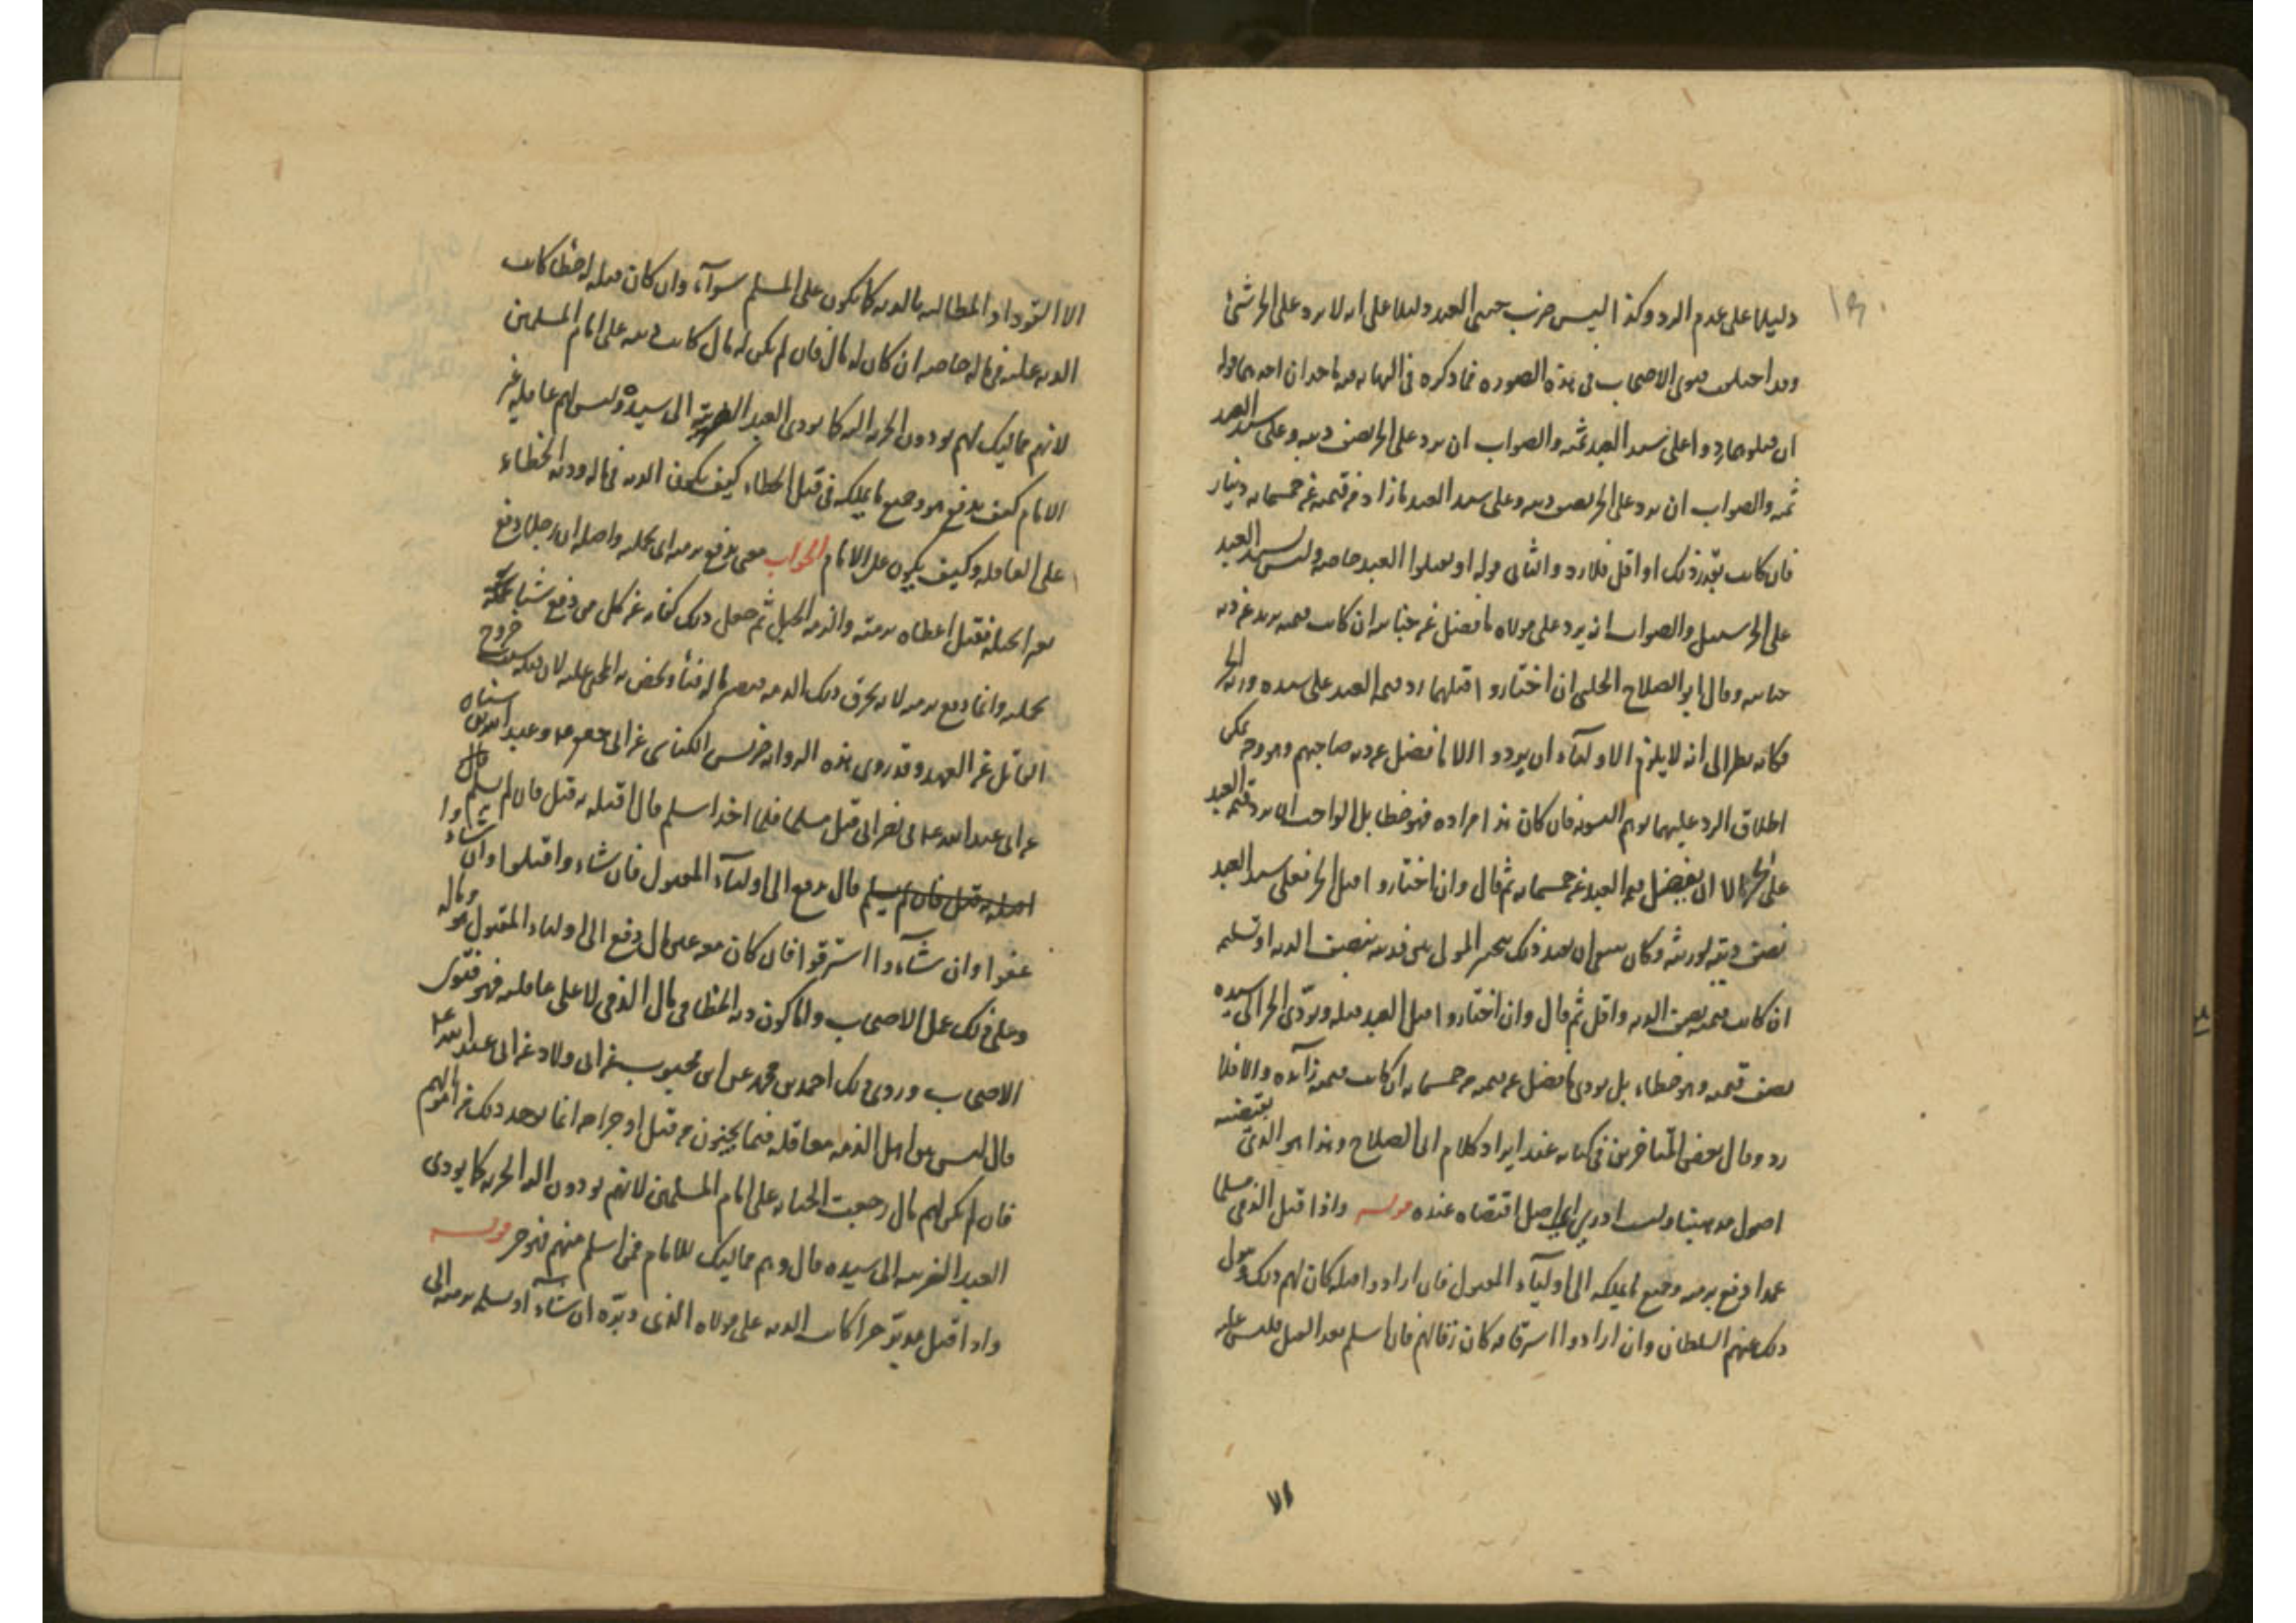 دليلا على عدم الرد وكذا ليس ضرب حصتى العبد دليلا على انه لا يرد على الحر شئ
وقد اختلف قول الاصحاب فى هذه الصورة فما ذكره فى النهاية فيه مأخذان احدهما قوله
ان قتلوهما ردوا على سيد العبد ثمنه والصواب ان يرد على الحر نصف ديته وعلى سيد العبد
ثمنه والصواب ان يرد على الحر نصف ديته وعلى سيد العبد ما زاد من قيمته عن خمسمائة دينار
فان كانت بقدر ذلك او اقل فلا رد والثانى قوله او يقتلوا العبد خاصة وليس لسيد العبد
على الحر سبيل والصواب انه يرد على مولاه ما فضل عن جنايته ان كانت قيمته يزيد عن دية
جنايته وقال ابو الصلاح الحلبى ان اختاروا قتلهما رد قيمة العبد على سيده وورثة الحر
فكأنه نظر الى انه لا يلزم الاولياء ان يردوا الا ما فضل عن دية صاحبهم وهو وجه لكن
اطلاق الرد عليهما يوهم التسوية فان كان هذا مراده فهو خطا بل الواجب ان يرد قيمة العبد
على الحر الا ان يفضل قيمة العبد عن خمسمائة ثم قال وان اختاروا قتل الحر فعلى سيد العبد
نصف ديته لورثته وكان ينبغى ان بعد ذلك يخير المولى بين فديته بنصف الدية او تسليمه
ان كانت قيمته نصف الدية واقل ثم قال وان اختاروا قتل العبد قتلوه ويؤدى الحر الى سيده
نصف قيمته وهو خطاء بل يودى ما فضل عن قيمته من خمسمائة ان كانت قيمته زائدة والا فلا
رد وقال بعض المتاخرين فى كتابه عند ايراد كلام ابى الصلاح وهذا هو الذى يقتضيه
اصول مذهبنا ولست ادرى اى اصل اقتضاه عنده قوله واذا قتل الذمى مسلما
عمدا دفع برمته وجميع ما يملكه الى اولياء المقتول فان ارادوا قتله كان لهم ذلك ويتولى
ذلك عنهم السلطان وان ارادوا استرقاقه كان رقا لهم فان اسلم بعد القتل فليس عليه
الا
الا القود او المطالبة بالدية كما يكون على المسلم سوآء وان كان قتله له خطا كانت
الدية عليه فى ماله خاصة ان كان له مال فان لم يكن له مال كانت ديته على امام المسلمين
لانهم مماليك لهم يودون الجزية اليه كما يودى العبد الضريبة الى سيده وليس لهم عاقلة غير
الامام كيف يدفع هو وجميع ما يملكه فى قتل الخطاء كيف يكون الدية فى ماله ودية الخطاء
على العاقلة وكيف يكون على الامام الجواب معنى يدفع برمته اى بكله واصله ان رجلا دفع
بعيرا بحبله فقيل اعطاه برمته والرمة الحبل ثم جعل ذلك كناية عن كل من دفع شيئا بجملته
بجملته وانما دفع برمته لانه بخرق ذلك الذمة فيصير ماله فيئا ويختص به المجنى عليه لان قتله سبب خروج
القاتل عن العهد وقد روى هذه الرواية ضريس الكناسى عن ابى جعفر ع وعبد الله بن سنان
عن ابى عبد الله ع فى نصرانى قتل مسلما فلما اخذ اسلم قال اقتله به قيل فان لم يسلم قال
اقتله به قيل فان لم يسلم قال يدفع الى اولياء المقتول فان شاء وا قتلوا وان شاء وا
عفوا وان شآء وا استرقوا فان كان معه عين مال دفع الى اولياء المقتول هو وماله
وعلى ذلك عمل الاصحاب واما كون دية الخطا فى مال الذمى لا على عاقلته فهو فتوى
الاصحاب وروى ذلك احمد بن محمد عن ابن محبوب عن ابى ولاد عن ابى عبد الله ع
قال ليس بين اهل الذمة معاقلة فيما يجنون من قتل او جراحة انما يوخذ ذلك من اموالهم
فان لم يكن لهم مال رجعت الجناية على امام المسلمين لانهم يودون اليه الجزية كما يودى
العبد الضريبة الى سيده قال وهم مماليك للامام فمن اسلم منهم فهو حر قوله
واذا قتل مدبر حرا كانت الدية على مولاه الذى دبره ان شآء او يسلمه برمته الى